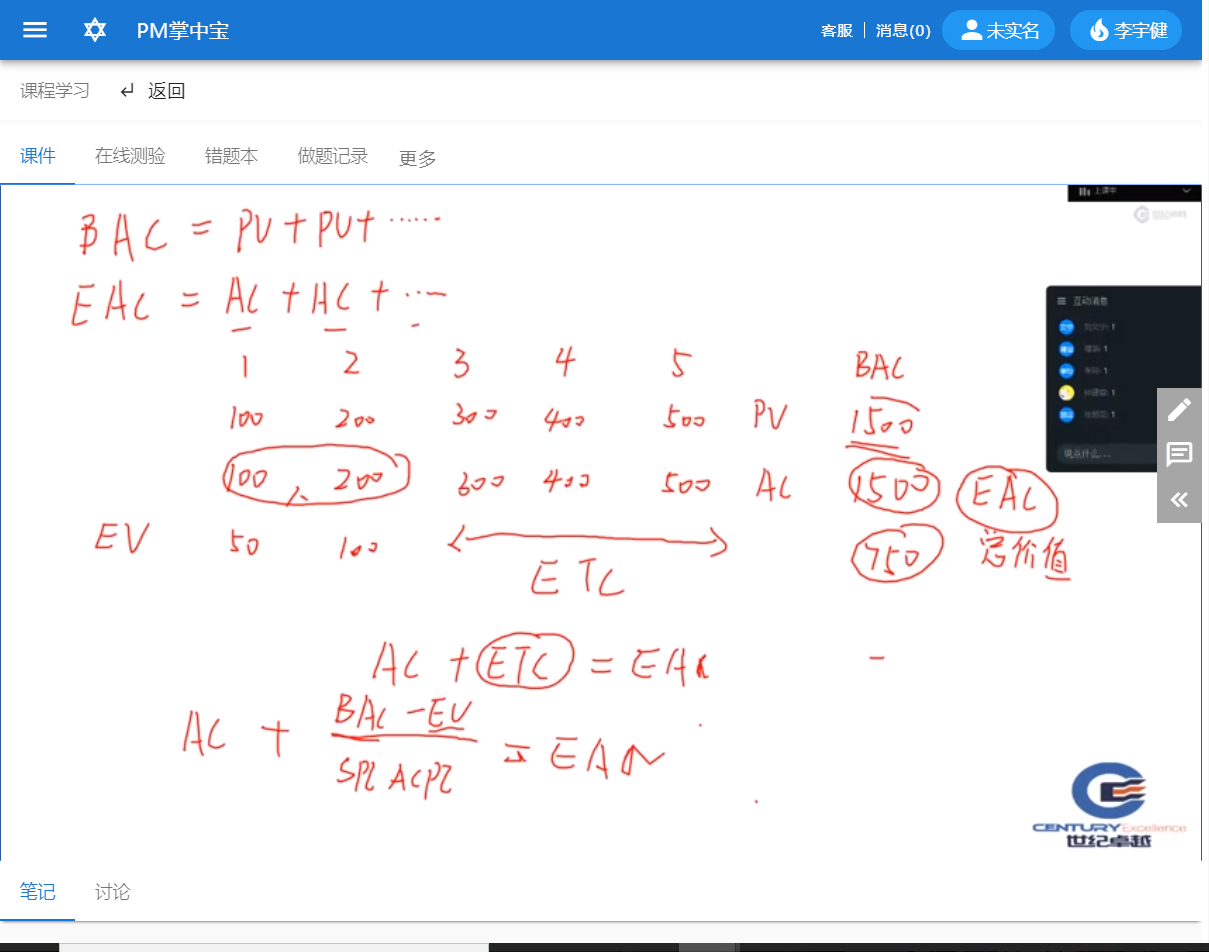 PM掌中宝 客服 消息(0) 未实名 李宇健
课程学习 返回
课件 在线测验 错题本 做题记录 更多
上课中
BAC = PV + PV + ······
EAC = AC + AC + ···
互动消息
1 2 3 4 5 BAC
100 200 300 400 500 PV 1500
100 200 300 400 500 AC 1500 EAC
说点什么...
EV 50 100 750 总价值
ETC
AC + ETC = EAC
BAC - EV
AC + = EAC
CENTURY Excellence
世纪卓越
笔记 讨论